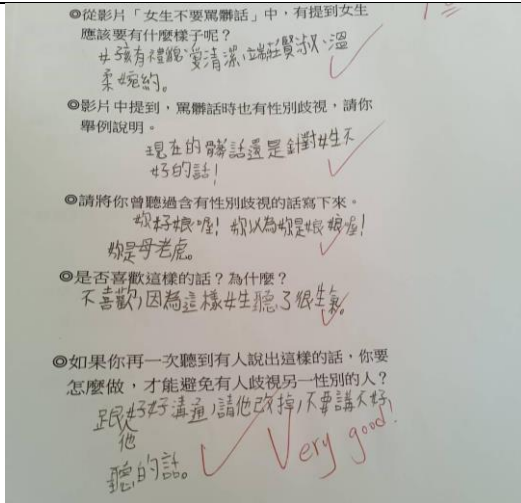 ◎從影片「女生不要罵髒話」中，有提到女生
應該要有什麼樣子呢？
女孩有禮貌愛清潔，端莊賢淑、溫
柔婉約。
◎影片中提到，罵髒話時也有性別歧視，請你
舉例說明。
現在的髒話還是針對女生不
好的話！
◎請將你曾聽過含有性別歧視的話寫下來。
妳好娘喔！妳以為妳是娘娘喔！
妳是母老虎。
◎是否喜歡這樣的話？為什麼？
不喜歡，因為這樣女生聽了很生氣。
◎如果你再一次聽到有人說出這樣的話，你要
怎麼做，才能避免有人歧視另一性別的人？
跟他好好溝通，請他改掉，不要講不好
聽的話。
Very good!